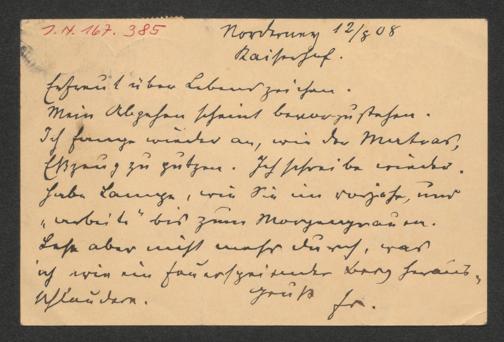 I.N. 167.385
Norderney 12/8 08
Kaiserhof.
Erfreut über Lebenszeichen.
Mein Abgehen scheint bevorzustehen.
Ich fange wieder an, wie der Matros,
Eßzeug zu putzen. Ich schreibe wieder.
Habe Lampe, wie Sie im vorjahr, und
„arbeite" bis zum Morgengrauen.
Lese aber nicht mehr durch, was
ich wie ein feuerspeiender Berg heraus-
schlaudere.
Gruß
Fr.